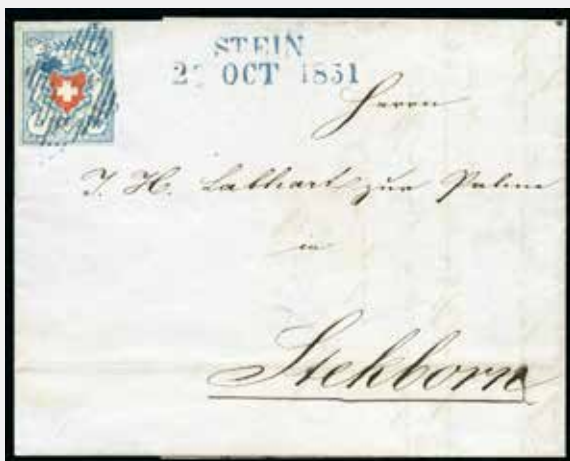 STEIN
2 OCT 1851
Herrn
J. H. Labhart zur Palme
in
Stekborn